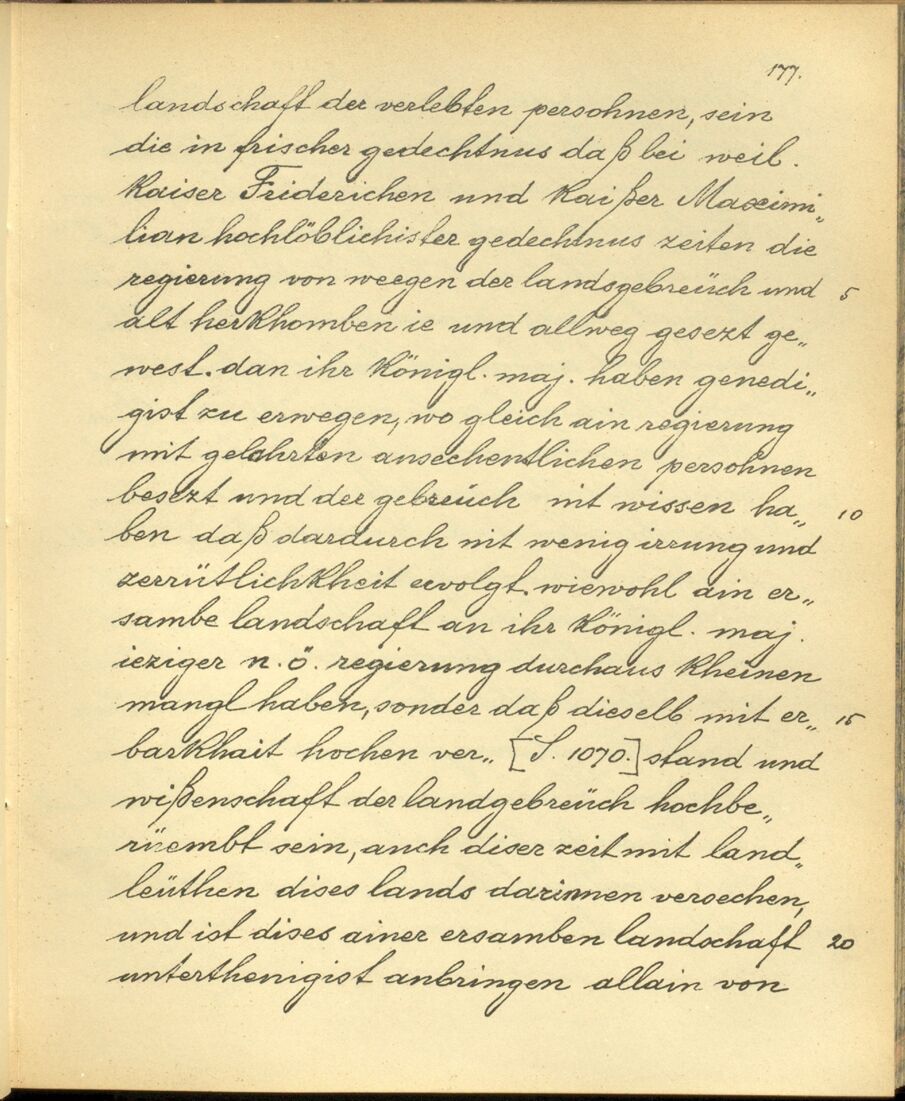 177.
landschaft der verlebten persohnen, sein
die in frischer gedechtnus daß bei weil.
Kaiser Friderichen und Kaißer Maximi„
lian hochlöblichister gedechtnus zeiten die
regierung von weegen der landsgebreüch und 5
alt herkhomben ie und allweg gesezt ge„
west. dan ihr Königl. maj. haben genedi„
gist zu erwegen, wo gleich ain regierung
mit gelehrten ansechentlichen persohnen
besezt und der gebreüch nit wissen ha„ 10
ben daß dardurch nit wenig irrung und
zerrütlichkheit ervolgt. wiewohl ain er„
sambe landschaft an ihr Königl. maj.
ieziger n.ö. regierung durchaus kheinen
mangl haben, sonder daß dieselb mit er„ 15
barkhait hochen ver„ [S. 1070.] stand und
wißenschaft der landgebreüch hochbe„
rüembt sein, auch diser zeit mit land„
leüthen dises lands darinnen versechen,
und ist dises ainer ersamben landschaft 20
unterthenigist anbringen allain von